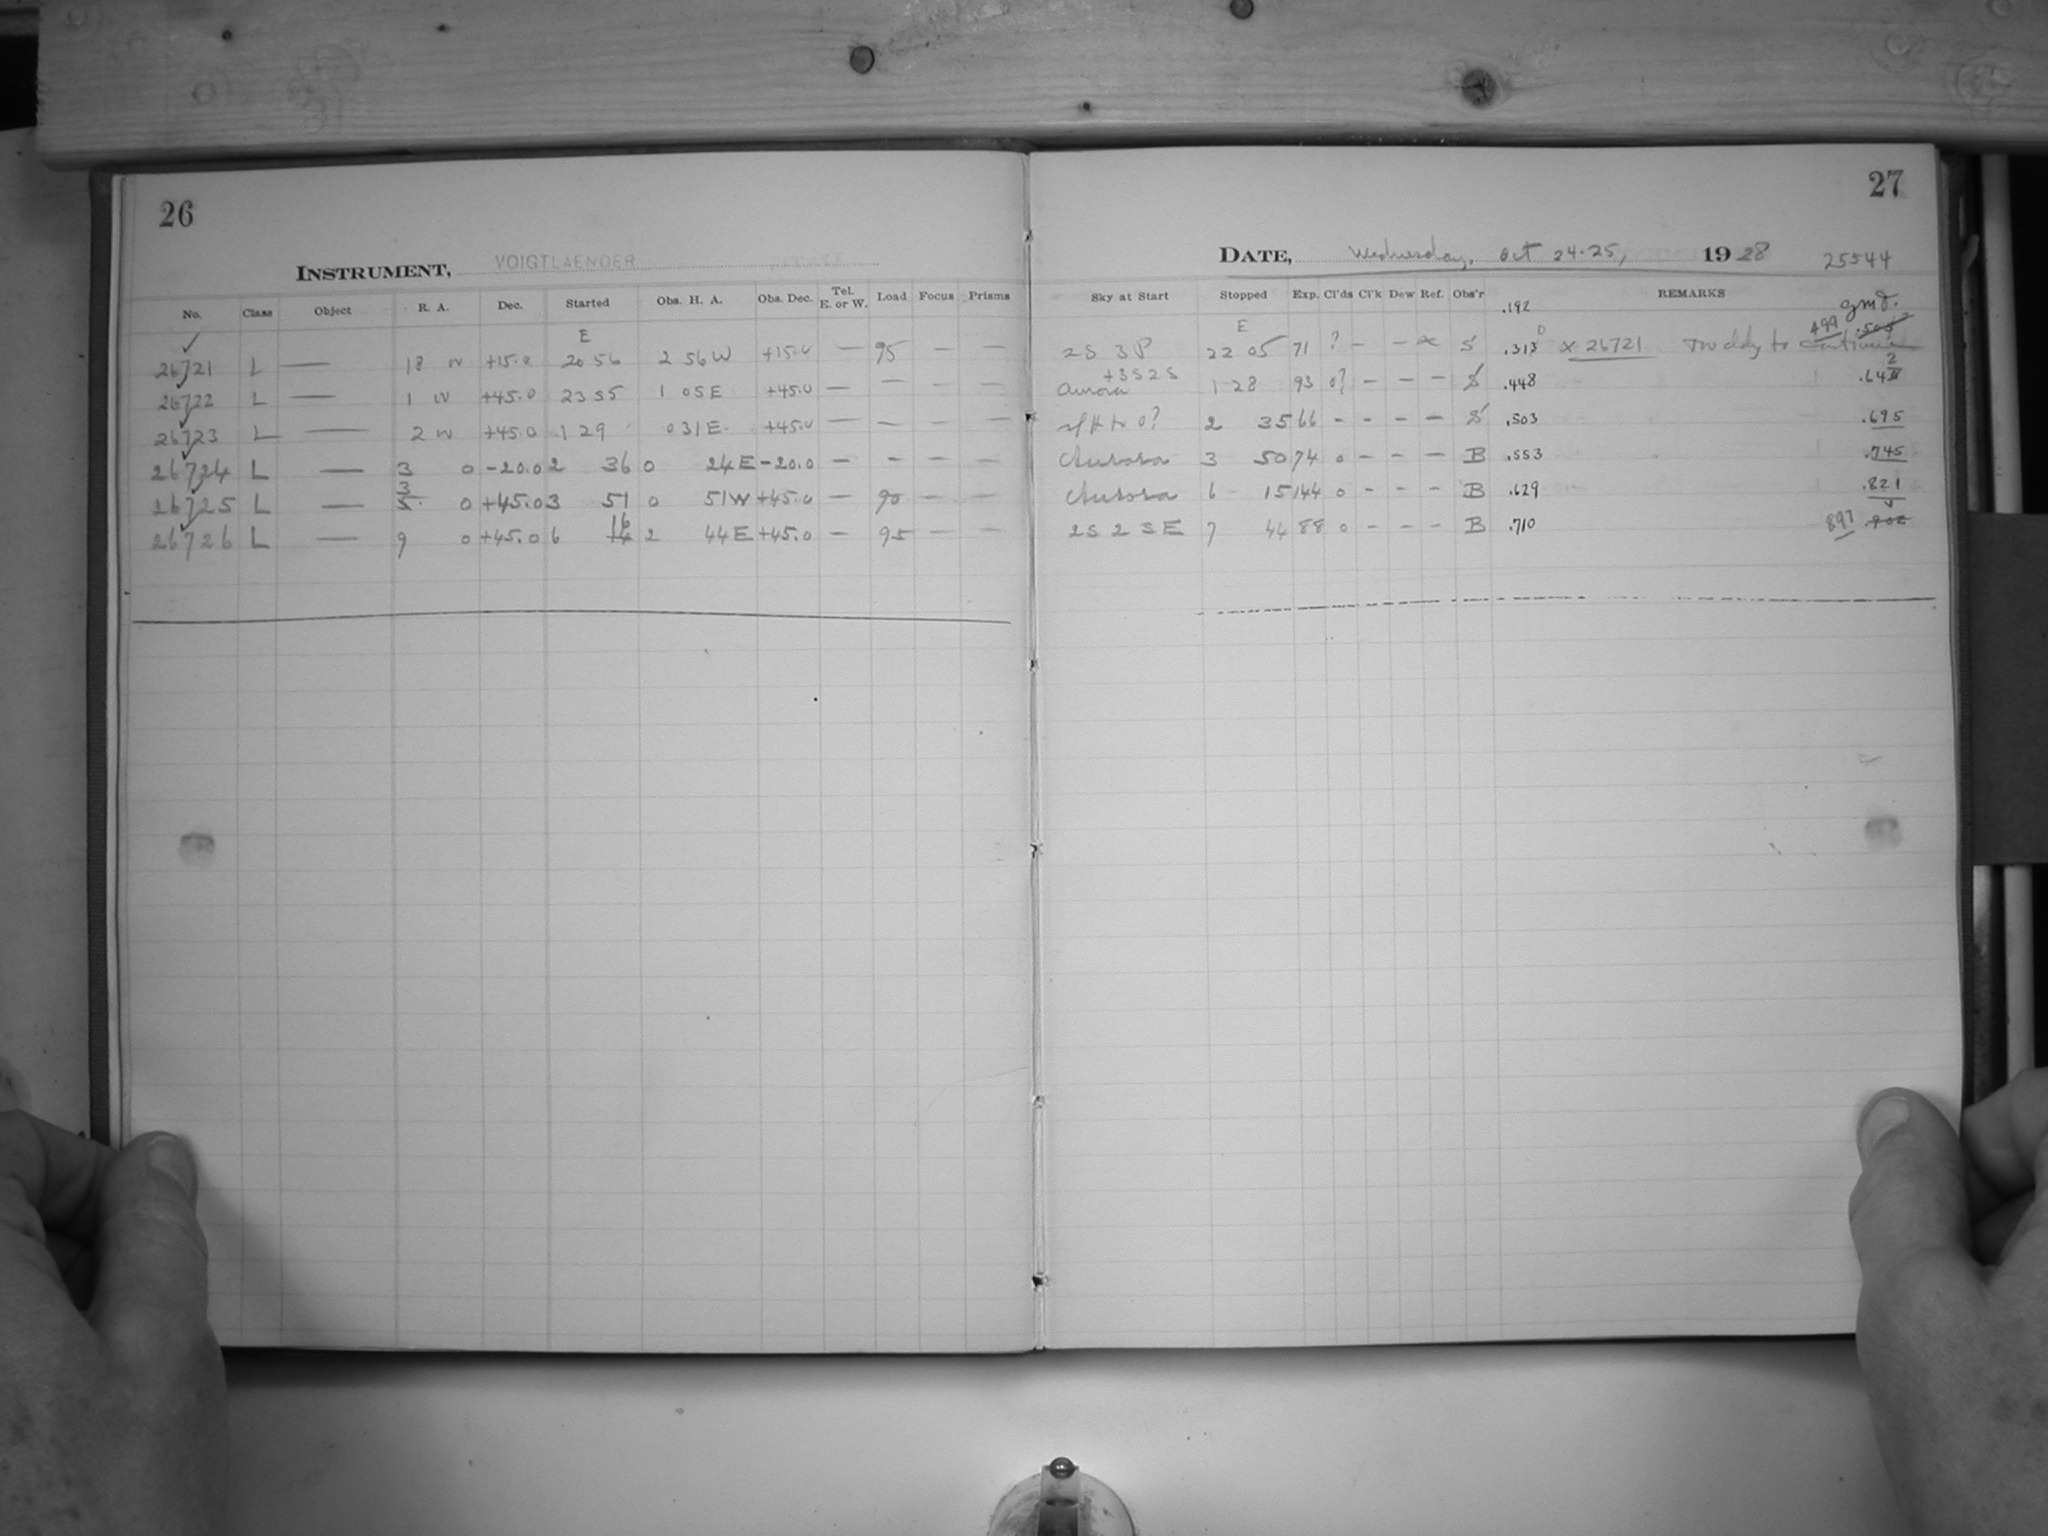 26
INSTRUMENT, VOIGTLAENDER
No. Class Object R. A. Dec. Started Obs. H. A. Obs. Dec. Tel. E. or W. Load Focus Prisms
E
26721 L — 18 W +15.0 20 56 2 56 W +15.0 — 95 — —
26722 L — 1 W +45.0 23 55 1 05 E +45.0 — — — —
26723 L — 2 W +45.0 1 29 0 31 E +45.0 — — — —
26724 L — 3 0 -20.0 2 36 0 24 E -20.0 — — — —
3
26725 L — 5 0 +45.0 3 51 0 51 W +45.0 — 90 — —
16
26726 L — 9 0 +45.0 6 14 2 44 E +45.0 — 95 — —
27
DATE, Wednesday, Oct 24-25, 1928 25544
Sky at Start Stopped Exp. Cl'ds Cl'k Dew Ref. Obs'r REMARKS
.192 G.M.T.
E 0 499 .505
2S 3P 22 05 71 ? — — x S .313 x 26721 Too cldy to continue
+3S2S 2
Aurora 1 28 93 0? — — — S .448 .64
2 35 66 - - - - S .503 .695
Aurora 3 50 74 0 - - - B .553 .745
Aurora 6 15 144 0 - - - B .629 .821
2S 2SE 7 44 88 0 - - - B .710 897 .902